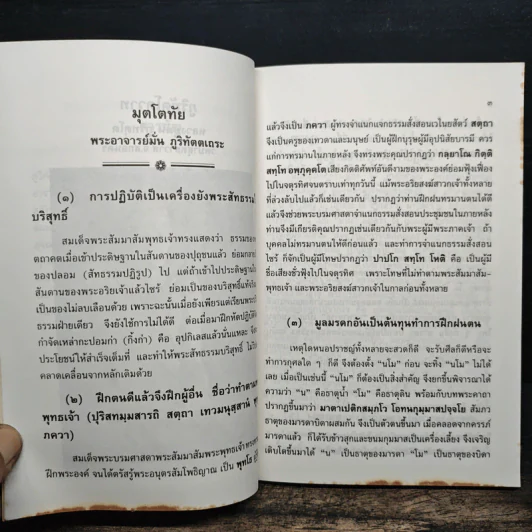 มุตโตทัย
พระอาจารย์มั่น ภูริทัตตเถระ
(๑) การปฏิบัติเป็นเครื่องยังพระสัทธรรมให้
บริสุทธิ์
สมเด็จพระสัมมาสัมพุทธเจ้าทรงแสดงว่า ธรรมของ
ตถาคตเมื่อเข้าประดิษฐานในสันดานของปุถุชนแล้ว ย่อมกลาย
ของปลอม (สัทธรรมปฏิรูป) ไป แต่ถ้าเข้าไปประดิษฐาน
สันดานของพระอริยเจ้าแล้วไซร้ ย่อมเป็นของบริสุทธิ์แท้จริง
เป็นของไม่ลบเลือนด้วย เพราะฉะนั้นเมื่อยังเพียรแต่เรียนพระ
ธรรมฝ่ายเดียว จึงยังใช้การไม่ได้ดี ต่อเมื่อมาฝึกหัดปฏิบัติ
กำจัดเหล่ากะปอมก่า (กิ้งก่า) คือ อุปกิเลสแล้วนั่นแหละ จึง
ประโยชน์ให้สำเร็จเต็มที่ และทำให้พระสัทธรรมบริสุทธิ์ ไม่
คลาดเคลื่อนจากหลักเดิมด้วย
(๒) ฝึกตนดีแล้วจึงฝึกผู้อื่น ชื่อว่าทำตาม
พุทธเจ้า (ปุริสทมฺมสารถิ สตฺถา เทวมนุสฺสานํ
ภควา)
สมเด็จพระบรมศาสดาพระสัมมาสัมพระพุทธเจ้าทรง
ฝึกพระองค์ จนได้ตรัสรู้พระอนุตรสัมโพธิญาณ เป็น พุทฺโธ
๓
แล้วจึงเป็น ภควา ผู้ทรงจำแนกแจกธรรมสั่งสอนเวไนยสัตว์ สตฺถา
จึงเป็นครูของเทวดาและมนุษย์ เป็นผู้ฝึกบุรุษผู้มีอุปนิสัยบารมี ควร
แก่การทรมานในภายหลัง จึงทรงพระคุณปรากฏว่า กลฺยาโณ กิตฺติ
สทฺโท อพฺภุคฺคโต เสียงกิตติศัพท์อันดีงามของพระองค์ย่อมฟุ้งเฟื่อง
ไปในจตุรทิศจนตราบเท่าทุกวันนี้ แม้พระอริยสงฆ์สาวกเจ้าทั้งหลาย
ที่ล่วงลับไปแล้วก็เช่นเดียวกัน ปรากฏว่าท่านฝึกฝนทรมานตนได้ดี
แล้วจึงช่วยพระบรมศาสดาจำแนกแจกธรรมสั่งสอนประชุมชนในภายหลัง
ท่านจึงมีเกียรติคุณปรากฏเช่นเดียวกับพระผู้มีพระภาคเจ้า ถ้า
บุคคลไม่ทรมานตนให้ดีก่อนแล้ว และทำการจำแนกธรรมสั่งสอน
ไซร้ ก็จักเป็นผู้มีโทษปรากฏว่า ปาปโก สทฺโท โหติ คือ เป็นผู้มี
ชื่อเสียงชั่วฟุ้งไปในจตุรทิศ เพราะโทษที่ไม่ทำตามพระสัมมาสัม-
พุทธเจ้า และพระอริยสงฆ์สาวกเจ้าในกาลก่อนทั้งหลาย
(๓) มูลมรดกอันเป็นต้นทุนทำการฝึกฝนตน
เหตุใดหนอปราชญ์ทั้งหลายจะสวดก็ดี จะรับศีลก็ดีหรือจะ
ทำการกุศลใด ๆ ก็ดี จึงต้องตั้ง "นโม" ก่อน จะทิ้ง "นโม" ไม่ได้
เลย เมื่อเป็นเช่นนี้ "นโม" ก็ต้องเป็นสิ่งสำคัญ จึงยกขึ้นพิจารณาได้
ความว่า "น" คือธาตุน้ำ "โม" คือธาตุดิน พร้อมกับบทพระคาถา
ปรากฏขึ้นมาว่า มาตาเปติกสมฺภโว โอทนกุมฺมาสปจฺจโย สัมภว
ธาตุของมารดาบิดาผสมกัน จึงเป็นตัวตนขึ้นมา เมื่อคลอดจากครรภ์
มารดาแล้ว ก็ได้รับข้าวสุกและขนมกุมมาสเป็นเครื่องเลี้ยง จึงเจริญ
เติบโตขึ้นมาได้ "น" เป็นธาตุของมารดา "โม" เป็นธาตุของบิดา